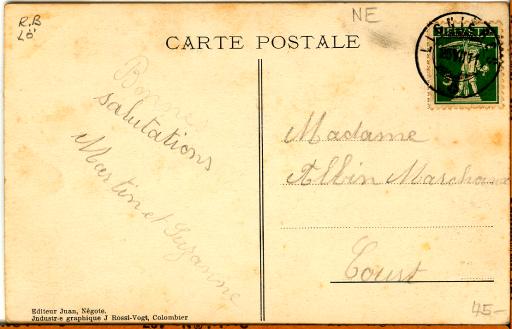 R.B
Lô
NE
CARTE POSTALE
Bonne
salutations
Martin et Suzanne
Madame
Albin Marchand
Court
Editeur Juan, Négote.
Industr-e graphique J Rossi-Vogt, Colombier
45-